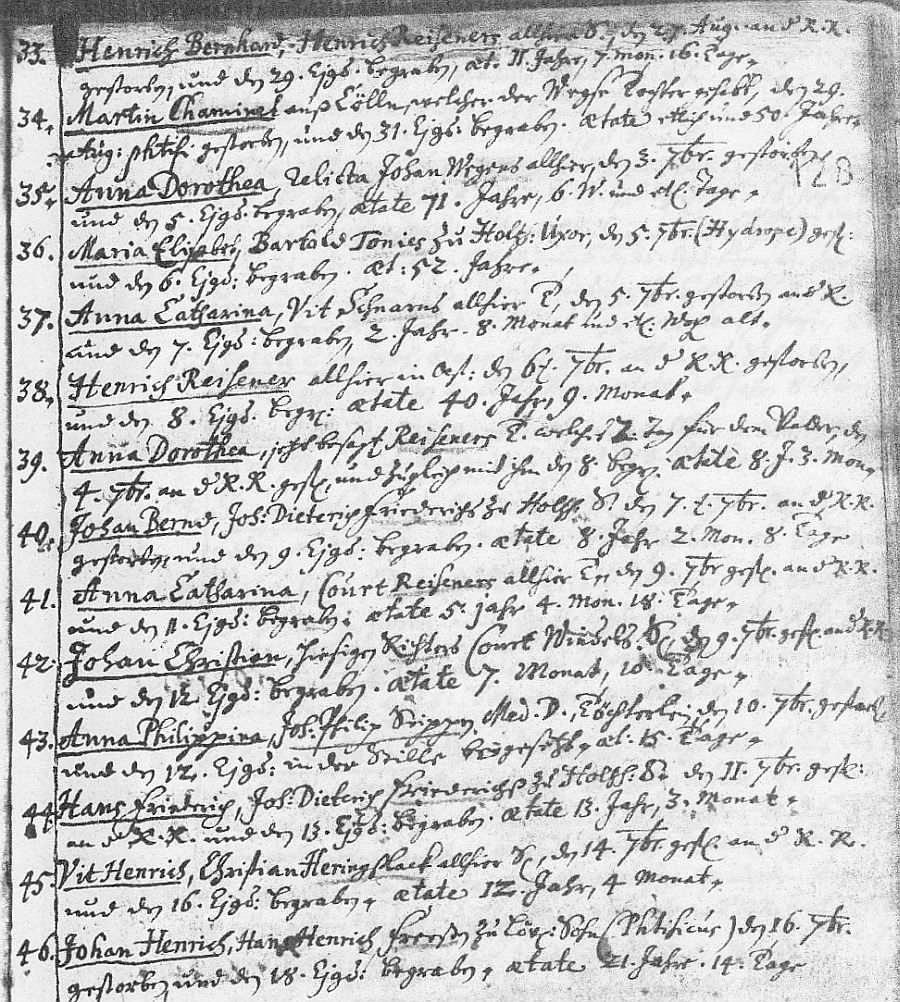 33. Henrich Bernhard, Henrich Reiseners allhier S. den 27. Aug. an d. R. R.
gestorben, und den 29. Ejgs. begraben, æt. 11 Jahre, 7. mon. 16. Tage.
34. Martin Chaminet auß Cölln, welcher der Tochter gehabt, den 29.
Aug: phtisi gestorben, und den 31. Ejgs: begraben. ætate etlich und 50. Jahre.
128
35. Anna Dorothea, relicta Johan Wegens allhier, den 3. 7br. gestorben
und den 5. Ejgs. begraben, ætate 71. Jahre, 6. W. und etl. Tage.
36. Maria Elisabet, Bartold Tonies zu Holtz: Uxor, den 5. 7br. (Hydrope) gest:
und den 6. Ejgs: begraben. æt: 52. Jahre.
37. Anna Catharina, Vit Schnarns allhier T, den 5. 7br. gestorben an d. R.
und den 7. Ejgs: begraben, 2. Jahr. 8. Monat und etl. Woch alt.
38. Henrich Reisener allhier in den 6t. 7br. an d. R. R. gestorben,
und den 8. Ejgs. begr: ætate 40. Jahr, 9. Monat.
39. Anna Dorothea, jetzt besagt Reiseners T. welche Tag für dem Vatter, den
4. 7br. an d. R. R. gest, und zugleich mit ihm den 8. begr. ætate 8. J. 3. Mon.
40. Johan Bernd, Joh: Dieterich Friederichs zu Holtzh. S. den 7. t. 7br. an d. R. R.
gestorben, und den 9. Ejgs: begraben. ætate 8. Jahr 2. Mon. 8. Tage
41. Anna Catharina, Court Reiseners allhier T, den 9. 7br gest. an d. R. R.
und den 11. Ejgs: begraben. ætate 5. jahr 4. Mon. 18. Tage.
42. Johan Christian, hiesigen Richters Court Windels. S. den 9. 7br. gest. an d. R. R.
und den 12. Ejgs: begraben. ætate 7. Monat, 10. Tage.
43. Anna Philippina, Joh: Philip Med. D. Töchterlein, den 10. 7br.
und den 12. Ejgs: in der Stille beygesetzt. æt. 15. Tage.
44. Hans Friederich, Joh: Dieterich Friederichs zu Holtzh: S. den 11. 7br. gest:
an d. R. R. und den 13. Ejgs: begraben. ætate 13. Jahr, 3. Monat.
45. Vit Henrich, Christian Heringslack allhier S., den 14. 7br gest. an d. R. R.
und den 16. Ejgs: begraben. ætate 12. Jahr, 4 Monat.
46. Johan Henrich, Hans Henrich zu Löx: Sohn (Phtisicus) den 16. 7br.
gestorben, und den 18. Ejgs: begraben. ætate 21. Jahre. 14. Tage